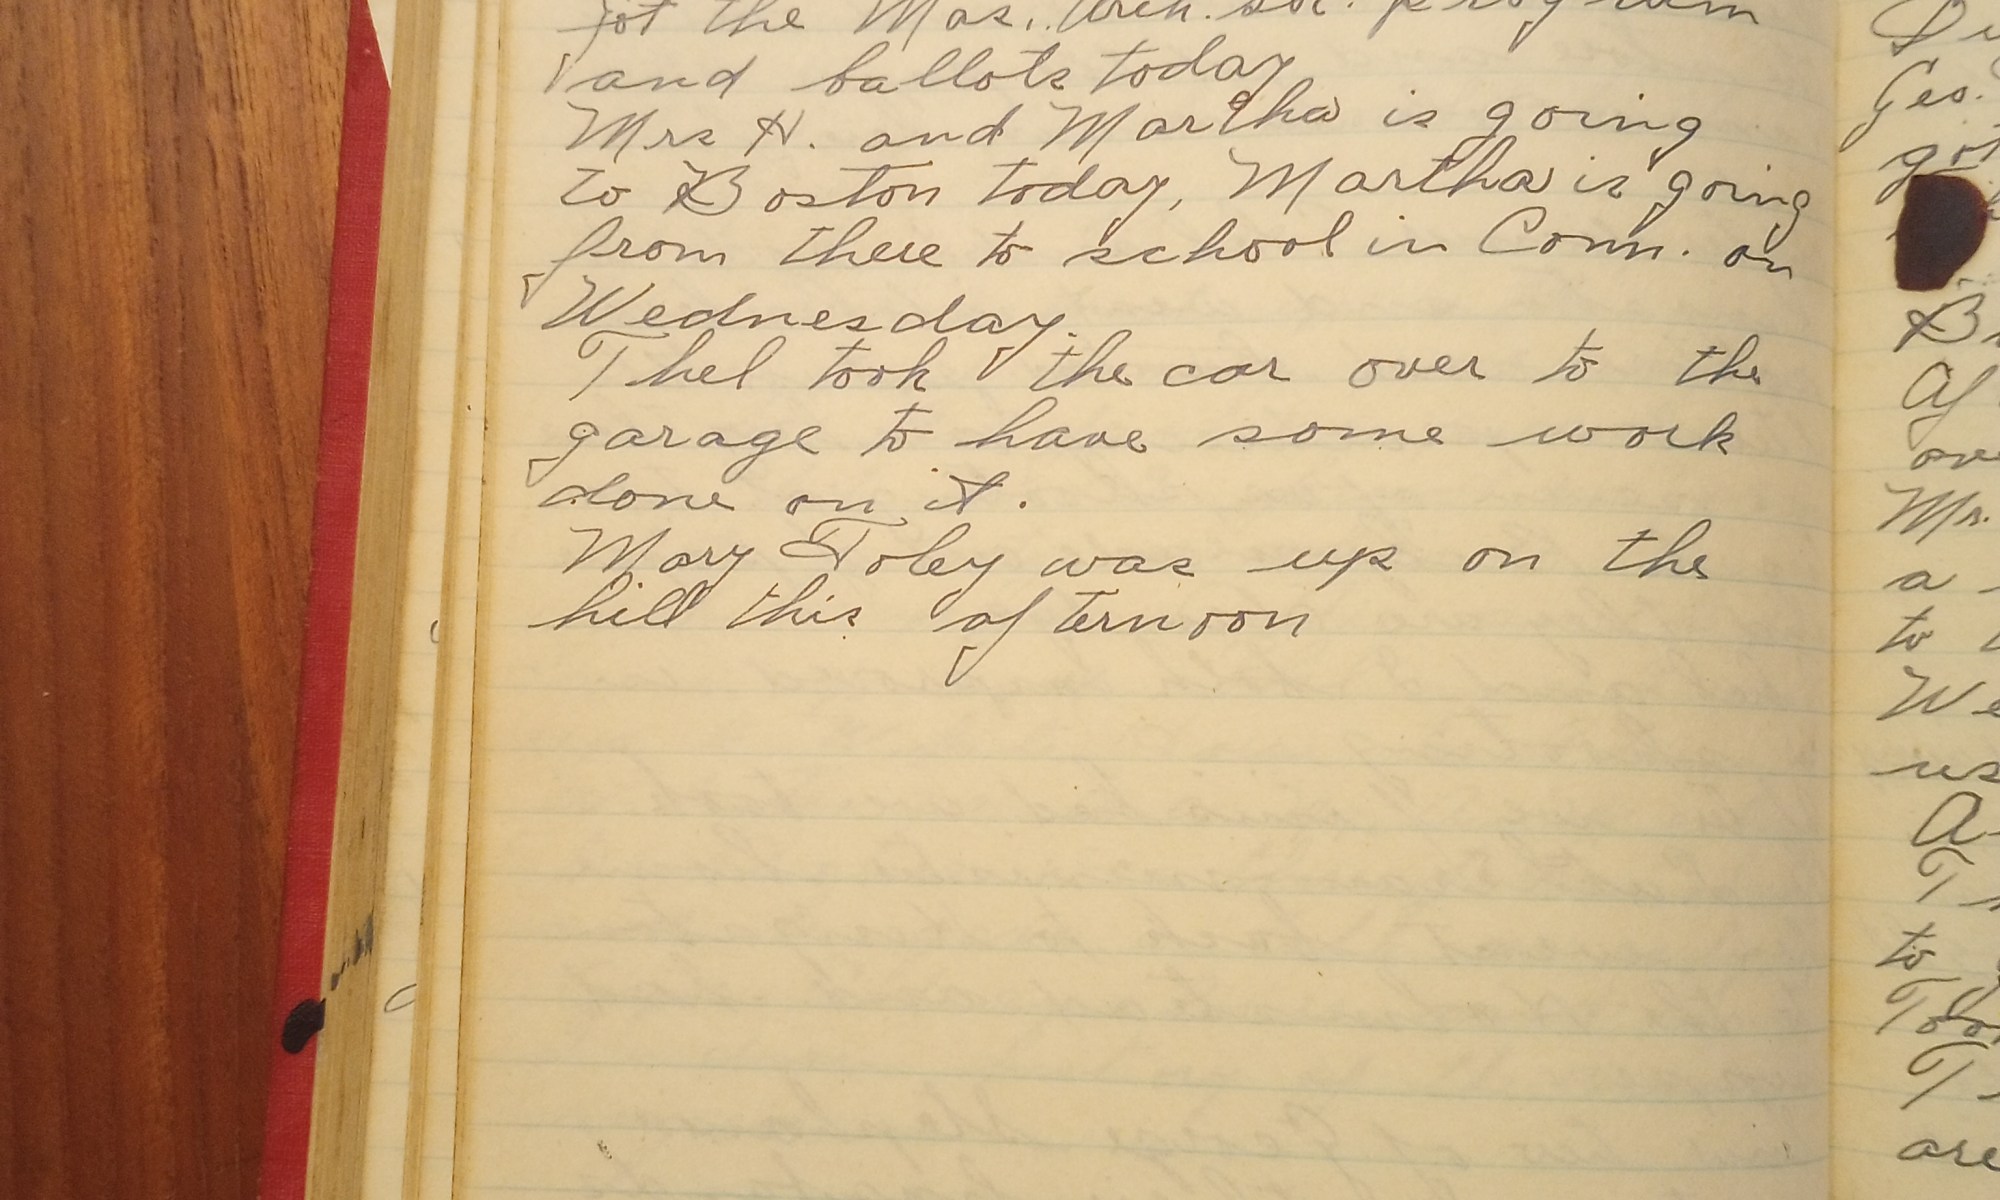 got the Mas. Arch. soc. program
and ballots today
Mrs H. and Martha is going
to Boston today, Martha is going
from there to school in Conn. on
Wednesday.
Thel took the car over to the
garage to have some work
done on it.
Mary Foley was up on the
hill this afternoon
Geo.
got
Mr.
a
to
We
us
to
are